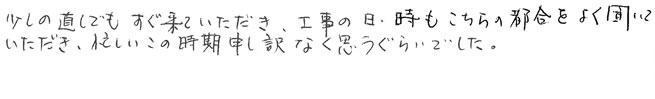 少しの直しでもすぐ来ていただき、工事の日・時もこちらの都合をよく聞いて
いただき、忙しいこの時期申し訳なく思うぐらいでした。